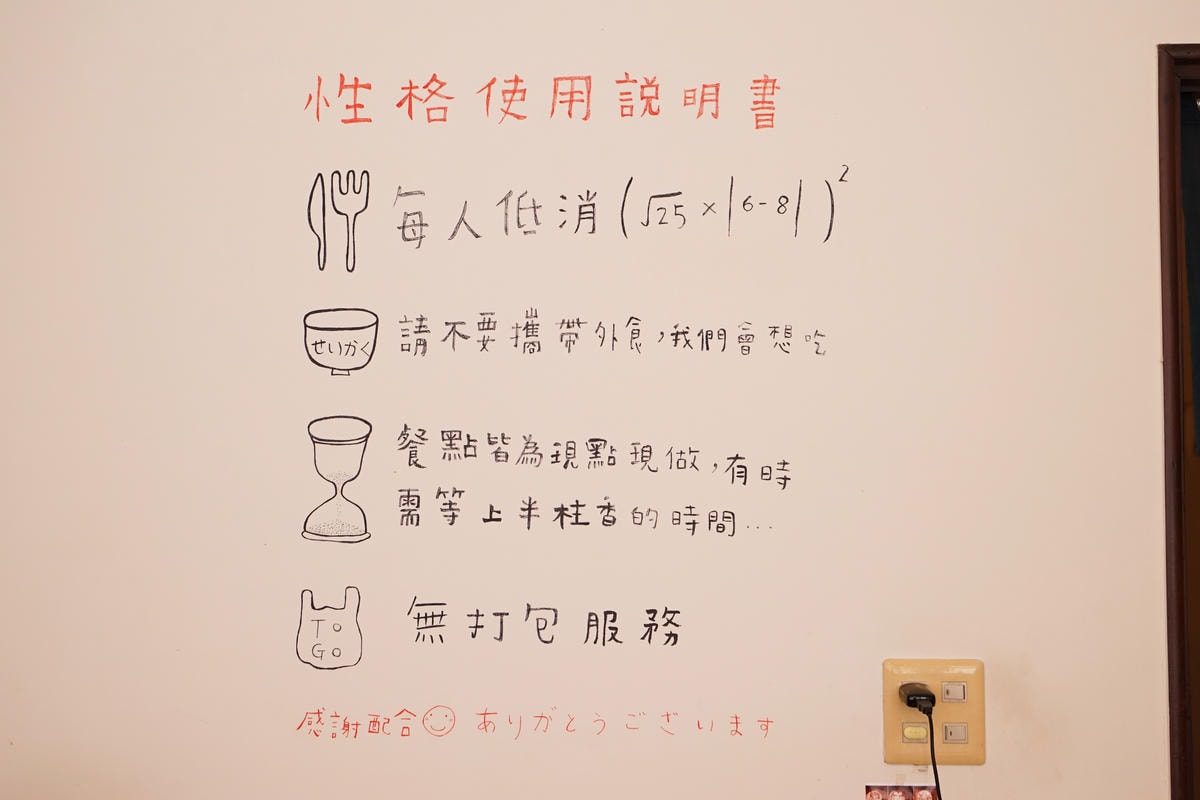 性格使用説明書
每人低消(√25×|6-8|)²
せいかく
請不要攜帶外食,我們會想吃
餐點皆為現點現做,有時
需等上半柱香的時間...
TO
GO
無打包服務
感謝配合 ありがとうございます